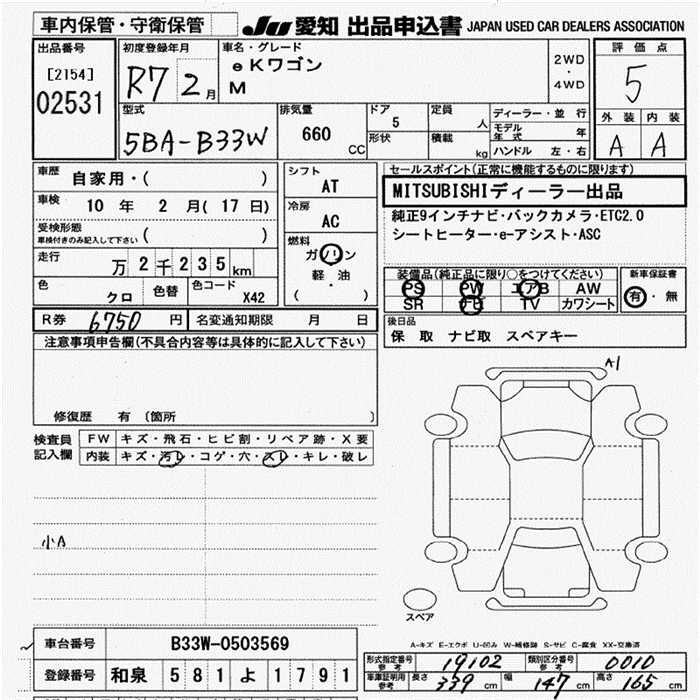 車内保管・守衛保管 JU 愛知 出品申込書 JAPAN USED CAR DEALERS ASSOCIATION
出品番号 初度登録年月 車名・グレード 評価点
[2154] R7 2月 eKワゴン 2WD・4WD 5
02531 M
型式 排気量 ドア 定員 ディーラー・並行 外装 内装
5BA-B33W 660 CC 5 人 モデル年式 年 A A
形状 積載 kg ハンドル 左・右
車歴 自家用・( ) シフト AT セールスポイント(正常に機能するものに限ります)
車検 10年 2月(17日) 冷房 AC MITSUBISHIディーラー出品
受検形態 車検付きのみ記入して下さい ( ) 燃料 純正9インチナビ・バックカメラ・ETC2.0
走行 万2千235km ガソリン シートヒーター・e-アシスト・ASC
軽・油
( )
色 クロ 色替 色コード X42
装備品(純正品に限り○をつけてください) 新車保証書
PS PW エアB AW 有・無
SR ナビ TV カワシート
R券 6750円 名変通知期限 月 日 後日品
保 取 ナビ取 スペアキー
注意事項申告欄(不具合内容等は具体的に記入して下さい)
A1
修復歴 有 〔箇所 〕
検査員記入欄 FW キズ・飛石・ヒビ割・リペア跡・X要
内装 キズ・汚レ・コゲ・穴・スレ・キレ・破レ
小A
スペア
A-キズ E-エクボ U-凹み W-補修跡 S-サビ C-腐食 XX-交換済
車台番号 B33W-0503569
形式指定番号 参考 19102 類別区分番号 参考 0010
登録番号 和泉 581よ1791
車庫証明用 参考 長さ 339cm 幅 147cm 高さ 165cm